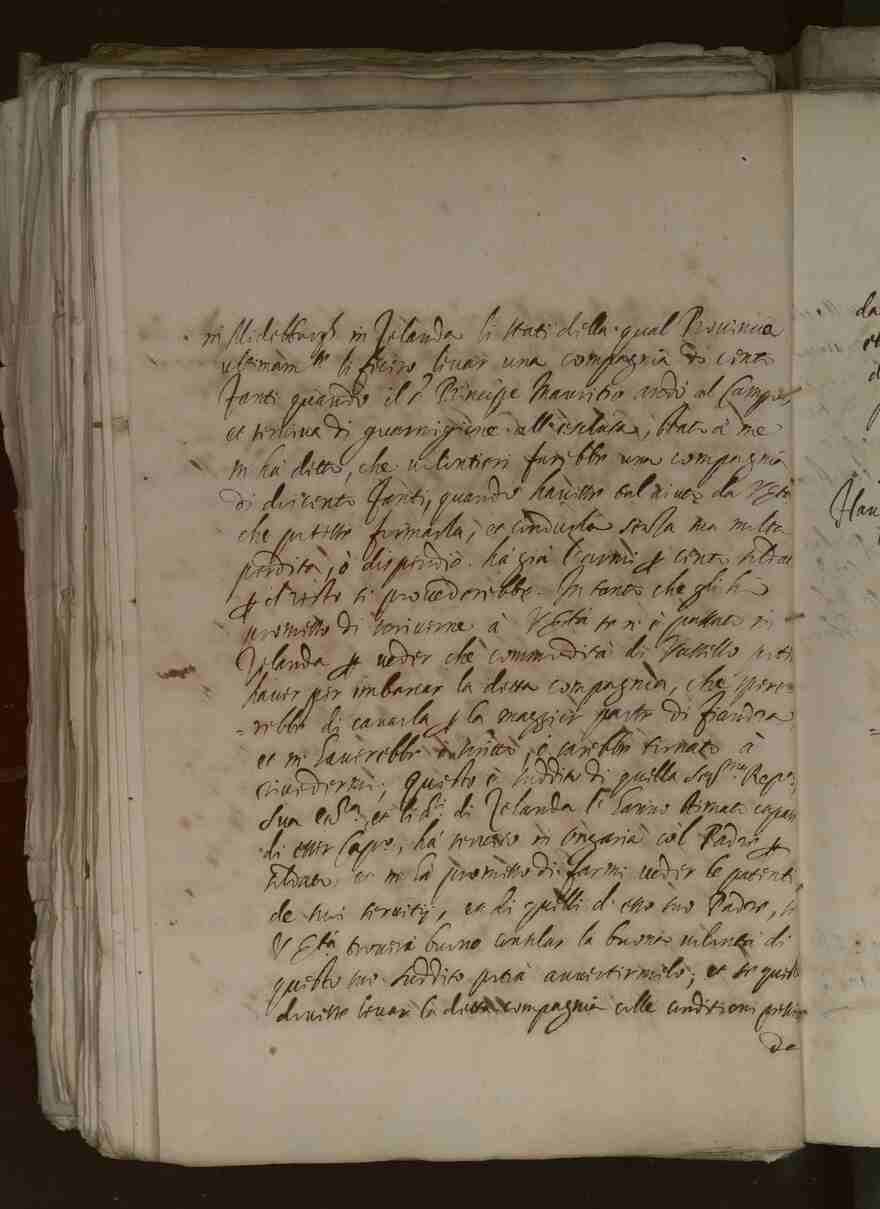 in Midelburgh in Zelanda li stati della qual Provincia
ultimam.te li fecero levar una compagnia di cento
fanti quando il s.r Principe Mauritio andò al Campo,
et serviva di guarnigione all'esclusa; stato à me
m'ha detto, che volontieri farebbe una compagnia
di duicento fanti, quando havesse tal aiuto da V.Stà
che potesse formarla, et condurla senza sua molta
perdita, ò dispendio. hà già l'armi p cento soldati
p il resto si provederebbe. In tanto che gli hò
promesso di scriverne à V.Stà se n'è passato in
Zelanda p veder che commodità di Vassello potrà
haver per imbarcar la detta compagnia, che spere=
=rebbe di cavarla p la maggior parte di fiandra
et m'haverebbe scritto, ò sarebbe tornato à
rivedermi; questo è suddito di quella Ser.ma Repca,
Sua Ecc.a et li s.ri di Zelanda l'hanno stimato capace
di esser Capno, hà servito in ongaria col Padre p
soldato et m'hà promesso di farmi veder le patenti
de suoi servitij, et di quelli d'esso suo Padre, se
V Stà troverà buono consolar la buona volontà di
questo suo suddito potrà avvertirmelo; et se questo
dovesse levar la detta compagnia colle conditioni
da